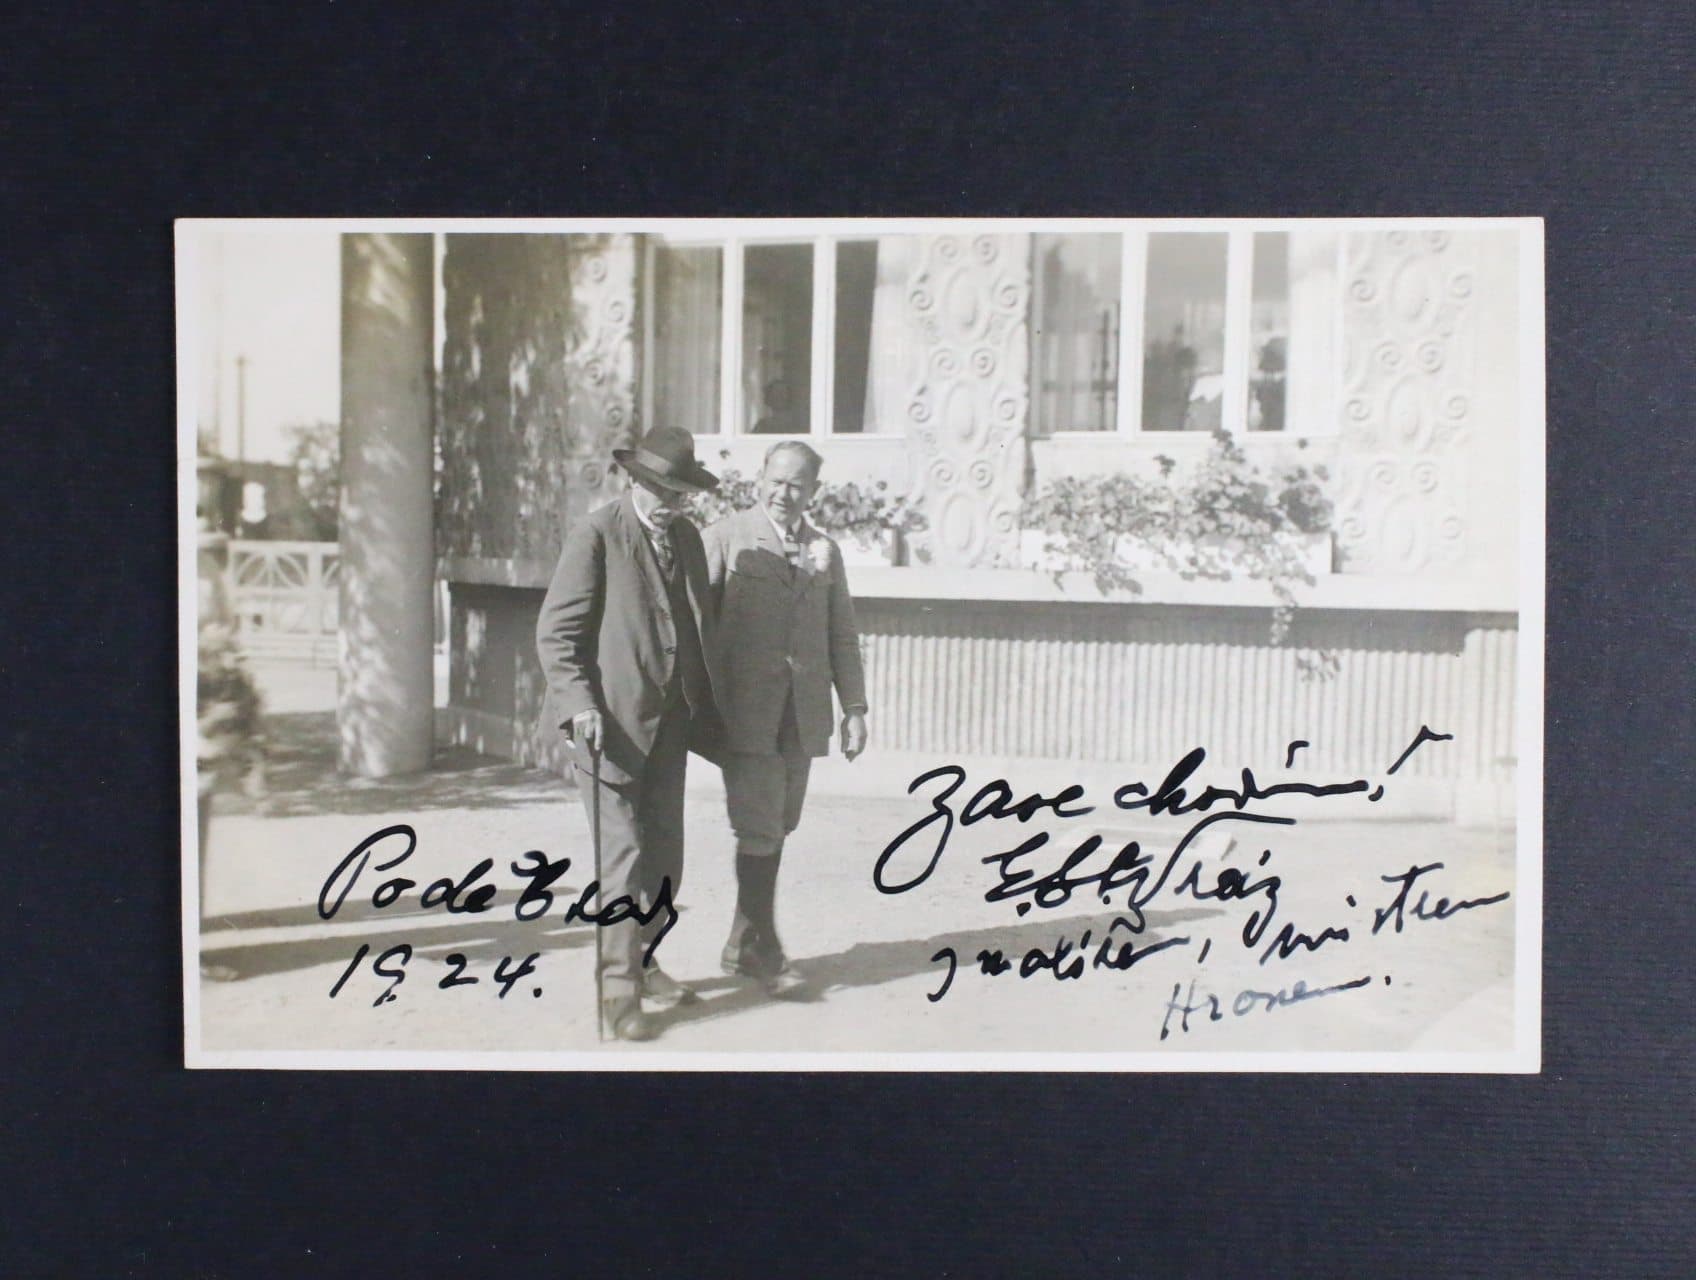 Poděbrady
1924.
Zase chodím!
E. St. Vráz
s malířem, mistrem
Hronem.